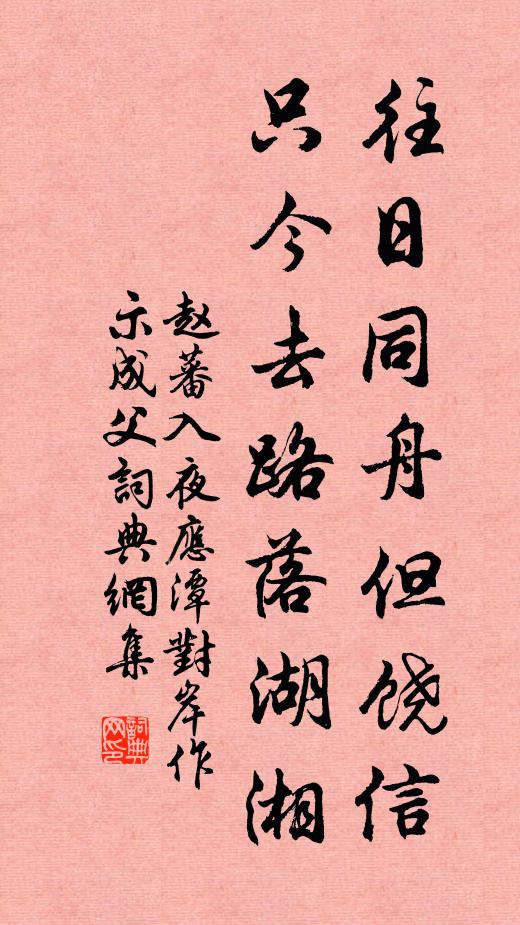 往日同舟但饶信
只今去路落湖湘
赵蕃入夜應潭對岸作
示成父詞典網集
詞典网印